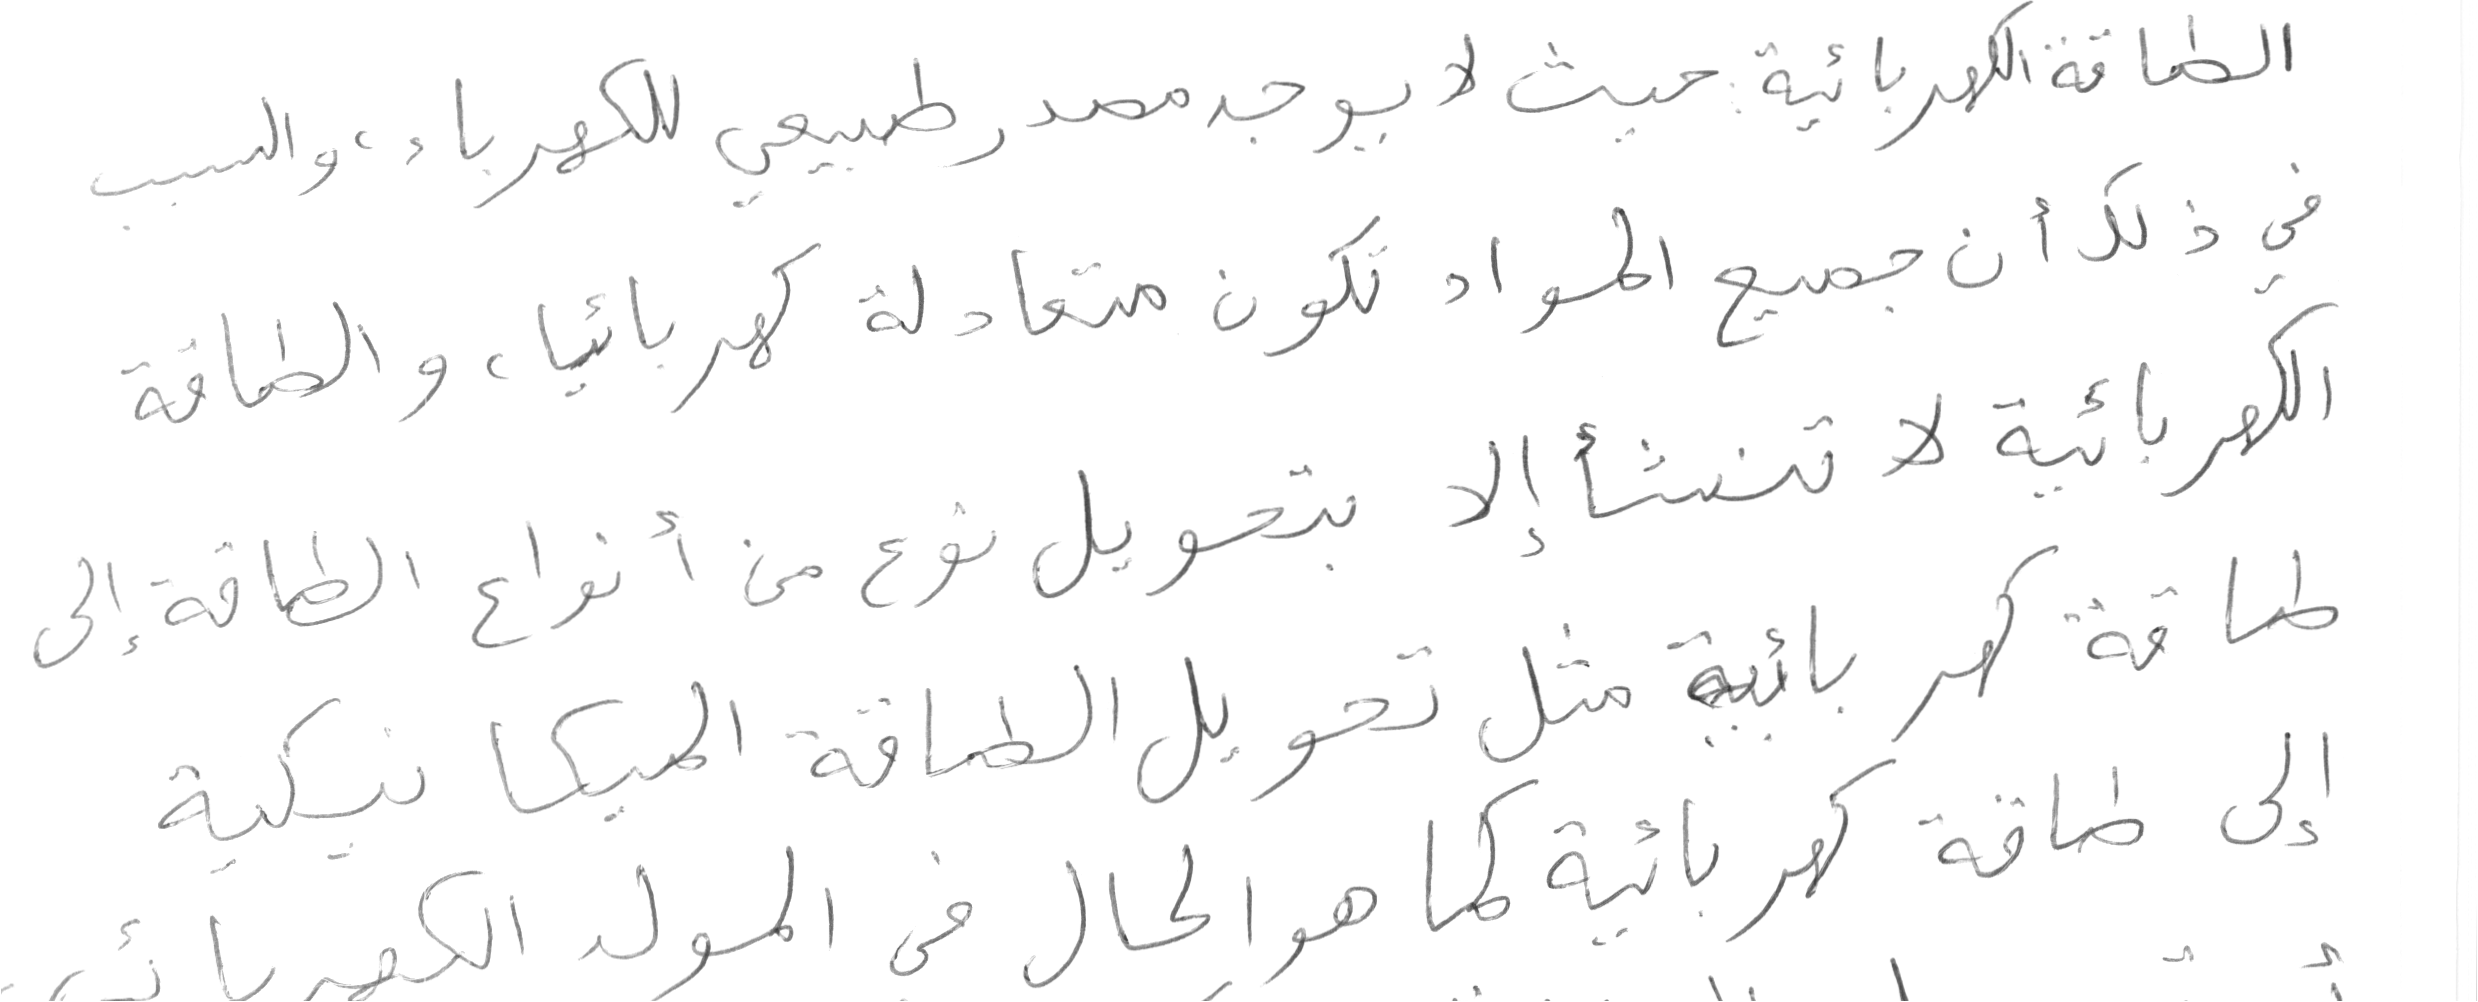 الطاقة الكهربائية: حيث لا يوجد مصدر طبيعي للكهرباء، والسبب
في ذلك أن جميع المواد تكون متعادلة كهربائيا، والطاقة
الكهربائية لا تنشأ إلا بتحويل نوع من أنواع الطاقة إلى
طاقة كهربائية مثل تحويل الطاقة الميكانيكية
إلى طاقة كهربائية كما هو الحال في المولد الكهربائي